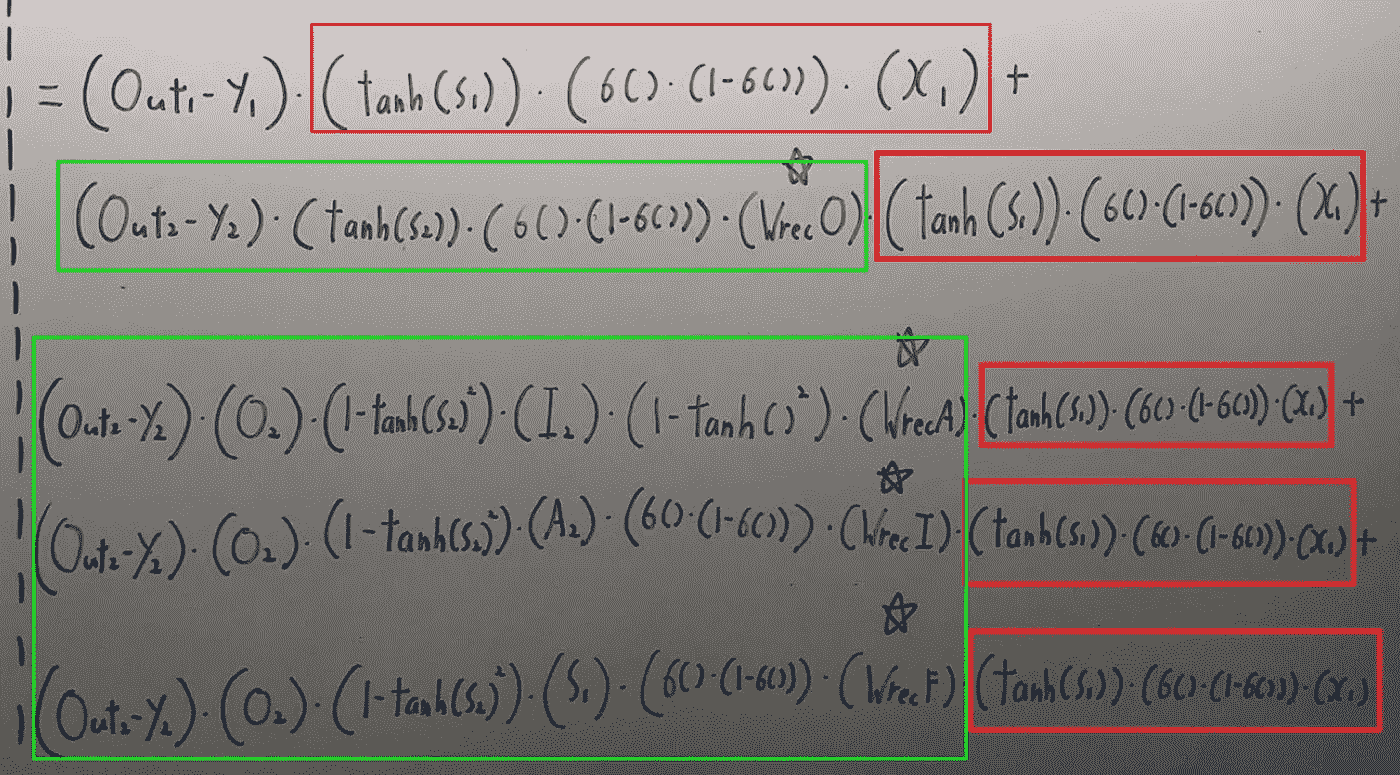 = (Out₁-Y₁)·(tanh(S₁))·(6()·(1-6()))·(X₁) +
(Out₂-Y₂)·(tanh(S₂))·(6()·(1-6()))·(WrecO)·(tanh(S₁))·(6()·(1-6()))·(X₁) +
(Out₂-Y₂)·(O₂)·(1-tanh(S₂)²)·(I₂)·(1-tanh()²)·(WrecA)·(tanh(S₁))·(6()·(1-6()))·(X₁) +
(Out₂-Y₂)·(O₂)·(1-tanh(S₂)²)·(A₂)·(6()·(1-6()))·(WrecI)·(tanh(S₁))·(6()·(1-6()))·(X₁) +
(Out₂-Y₂)·(O₂)·(1-tanh(S₂)²)·(S₁)·(6()·(1-6()))·(WrecF)·(tanh(S₁))·(6()·(1-6()))·(X₁)